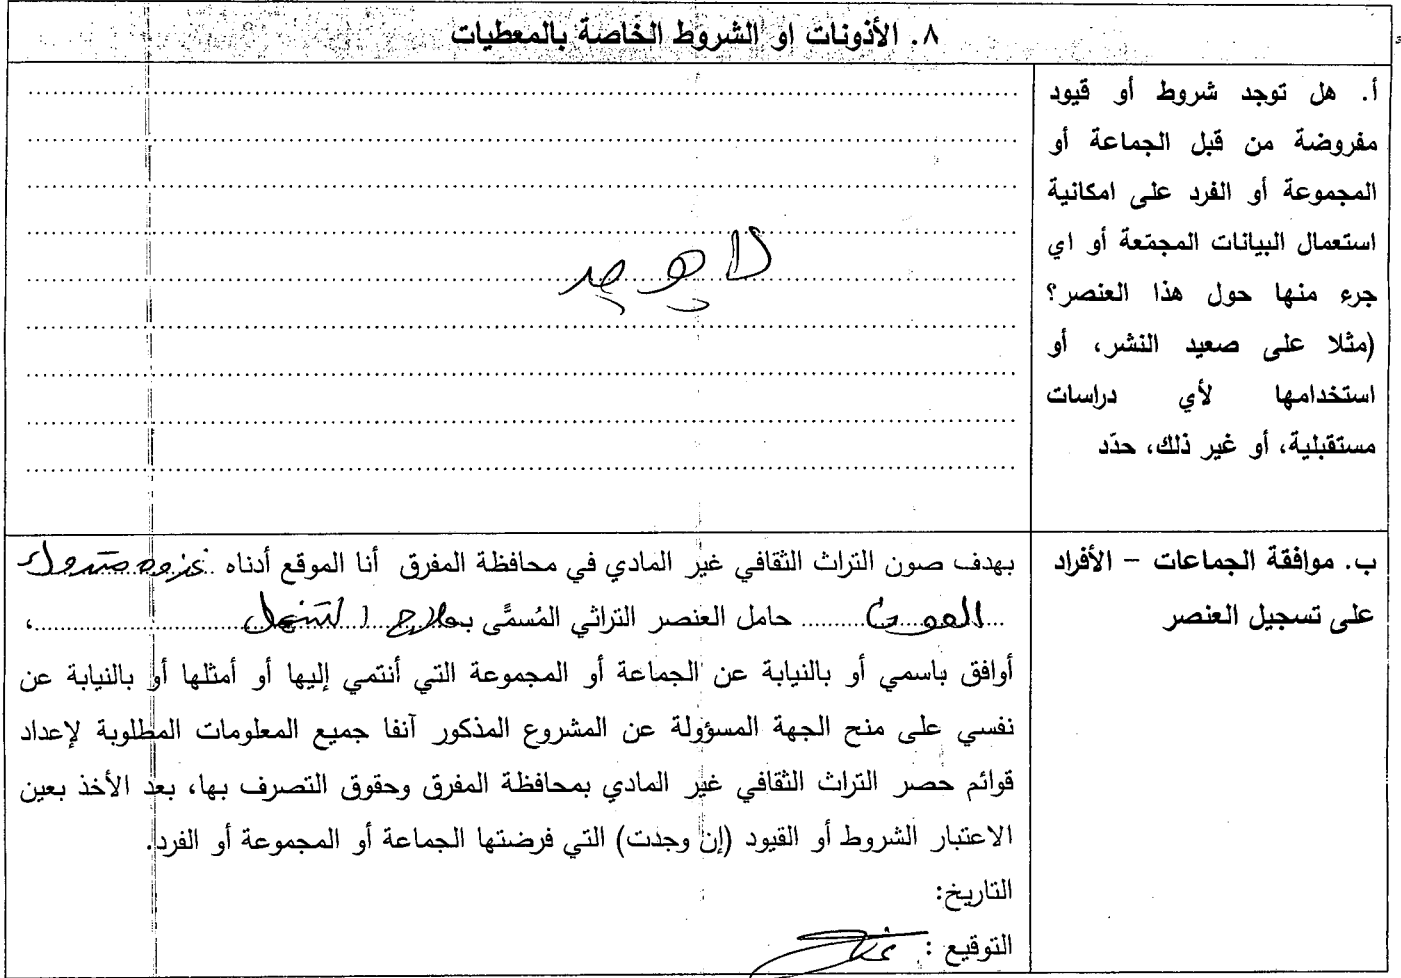 ٨. الأذونات او الشروط الخاصة بالمعطيات
أ. هل توجد شروط أو قيود
مفروضة من قبل الجماعة أو
المجموعة أو الفرد على امكانية
استعمال البيانات المجمّعة أو اي
جرء منها حول هذا العنصر؟
(مثلا على صعيد النشر، أو
استخدامها لأي دراسات
مستقبلية، أو غير ذلك، حدّد
لا يوجد
ب. موافقة الجماعات – الأفراد
على تسجيل العنصر
بهدف صون التراث الثقافي غير المادي في محافظة المفرق أنا الموقع أدناه
حامل العنصر التراثي المُسمَّى بـ علاج ،
أوافق باسمي أو بالنيابة عن الجماعة أو المجموعة التي أنتمي إليها أو أمثلها أو بالنيابة عن
نفسي على منح الجهة المسؤولة عن المشروع المذكور آنفا جميع المعلومات المطلوبة لإعداد
قوائم حصر التراث الثقافي غير المادي بمحافظة المفرق وحقوق التصرف بها، بعد الأخذ بعين
الاعتبار الشروط أو القيود (إن وجدت) التي فرضتها الجماعة أو المجموعة أو الفرد.
التاريخ:
التوقيع :